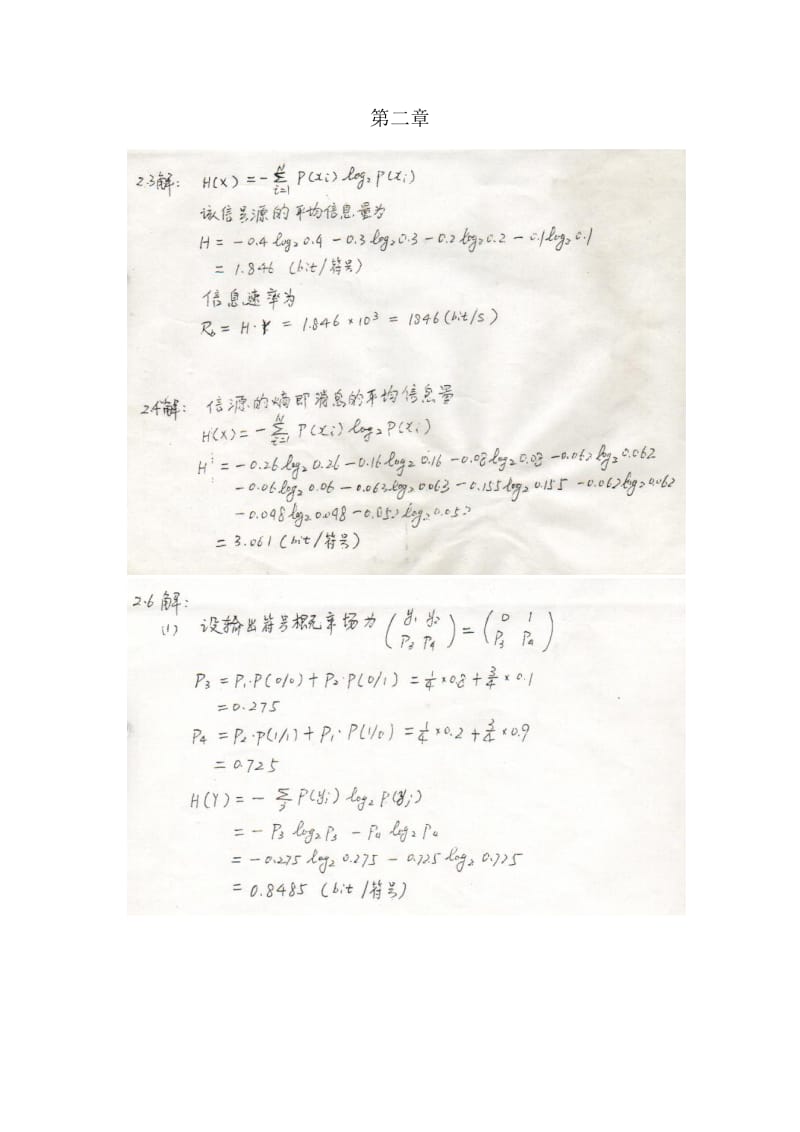 第二章
2.3解: H(X) = -∑_{i=1}^{N} P(xi) log₂ P(xi)
该信号源的平均信息量为
H = -0.4 log₂ 0.4 - 0.3 log₂ 0.3 - 0.2 log₂ 0.2 - 0.1 log₂ 0.1
= 1.846 (bit/符号)
信息速率为
R_b = H·r = 1.846 × 10³ = 1846 (bit/s)
2.4解: 信源的熵即消息的平均信息量
H(X) = -∑_{i=1}^{N} P(xi) log₂ P(xi)
H = -0.26 log₂ 0.26 - 0.16 log₂ 0.16 - 0.08 log₂ 0.08 - 0.062 log₂ 0.062
-0.06 log₂ 0.06 - 0.063 log₂ 0.063 - 0.155 log₂ 0.155 - 0.062 log₂ 0.062
-0.048 log₂ 0.048 - 0.052 log₂ 0.052
= 3.061 (bit/符号)
2.6 解:
(1) 设输出符号概率场为 (y₁ y₂ / P₃ P₄) = (0 1 / P₃ P₄)
P₃ = P₁·P(0/0) + P₂·P(0/1) = 1/4 × 0.8 + 3/4 × 0.1
= 0.275
P₄ = P₂·P(1/1) + P₁·P(1/0) = 1/4 × 0.2 + 3/4 × 0.9
= 0.725
H(Y) = -∑_j P(yj) log₂ P(yj)
= -P₃ log₂ P₃ - P₄ log₂ P₄
= -0.275 log₂ 0.275 - 0.725 log₂ 0.725
= 0.8485 (bit/符号)